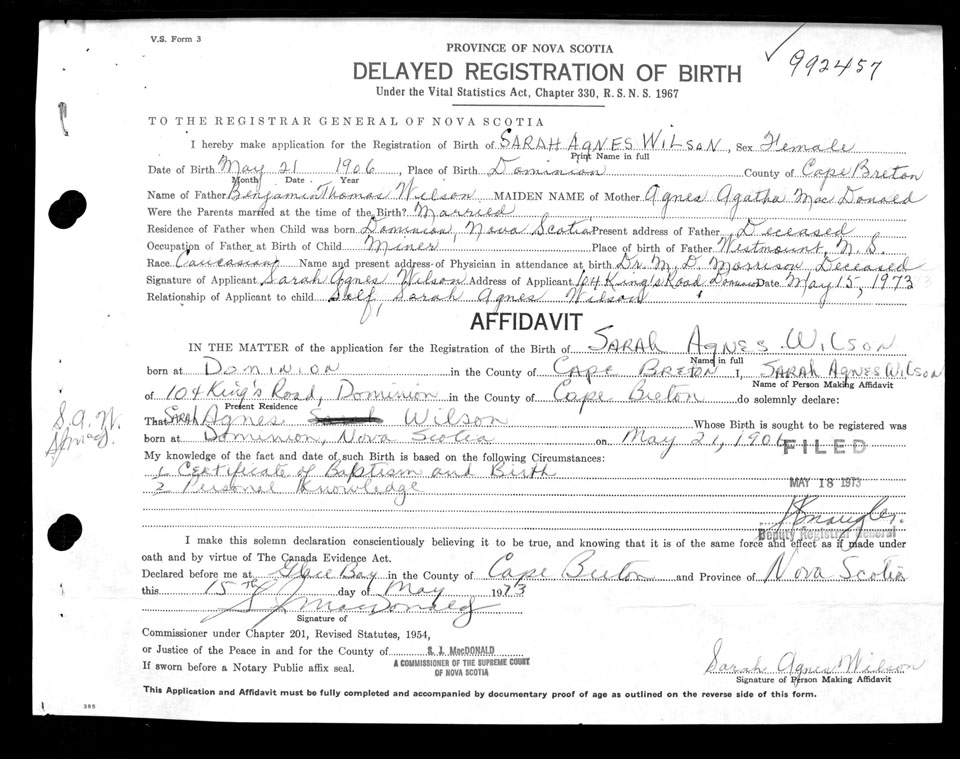 V.S. Form 3
PROVINCE OF NOVA SCOTIA
992457
DELAYED REGISTRATION OF BIRTH
Under the Vital Statistics Act, Chapter 330, R. S. N. S. 1967
TO THE REGISTRAR GENERAL OF NOVA SCOTIA
I hereby make application for the Registration of Birth of SARAH AGNES WILSON, Sex Female
Print Name in full
Date of Birth May 21 1906, Place of Birth Dominion County of Cape Breton
Month Date Year
Name of Father Benjamin Thomas Wilson MAIDEN NAME of Mother Agnes Agatha Mac Donald
Were the Parents married at the time of the Birth? Married
Residence of Father when Child was born Dominion, Nova Scotia Present address of Father Deceased
Occupation of Father at Birth of Child Miner Place of birth of Father Westmount, N. S.
Race Caucasian Name and present address of Physician in attendance at birth Dr. M. D. Morrison Deceased
Signature of Applicant Sarah Agnes Wilson Address of Applicant 104 King's Road Dominion Date May 15, 1973
Relationship of Applicant to child Self, Sarah Agnes Wilson
AFFIDAVIT
IN THE MATTER of the application for the Registration of the Birth of SARAH AGNES WILSON
Name in full
born at DOMINION in the County of CAPE BRETON I, SARAH AGNES WILSON
Name of Person Making Affidavit
of 104 King's Road, Dominion in the County of Cape Breton do solemnly declare:
Present Residence
S.A.W.
That SARAH Agnes Sarah Wilson Whose Birth is sought to be registered was
born at Dominion, Nova Scotia on May 21, 1906
FILED
My knowledge of the fact and date of such Birth is based on the following Circumstances:
1. Certificate of Baptism and Birth
2 Personal Knowledge
MAY 18 1973
Deputy Registrar General
I make this solemn declaration conscientiously believing it to be true, and knowing that it is of the same force and effect as if made under
oath and by virtue of The Canada Evidence Act.
Declared before me at Glace Bay in the County of Cape Breton and Province of Nova Scotia
this 15th day of May 1973
S J MacDonald
Signature of
Commissioner under Chapter 201, Revised Statutes, 1954,
or Justice of the Peace in and for the County of S. J. MacDONALD
A COMMISSIONER OF THE SUPREME COURT
If sworn before a Notary Public affix seal.
OF NOVA SCOTIA
Sarah Agnes Wilson
Signature of Person Making Affidavit
This Application and Affidavit must be fully completed and accompanied by documentary proof of age as outlined on the reverse side of this form.
385